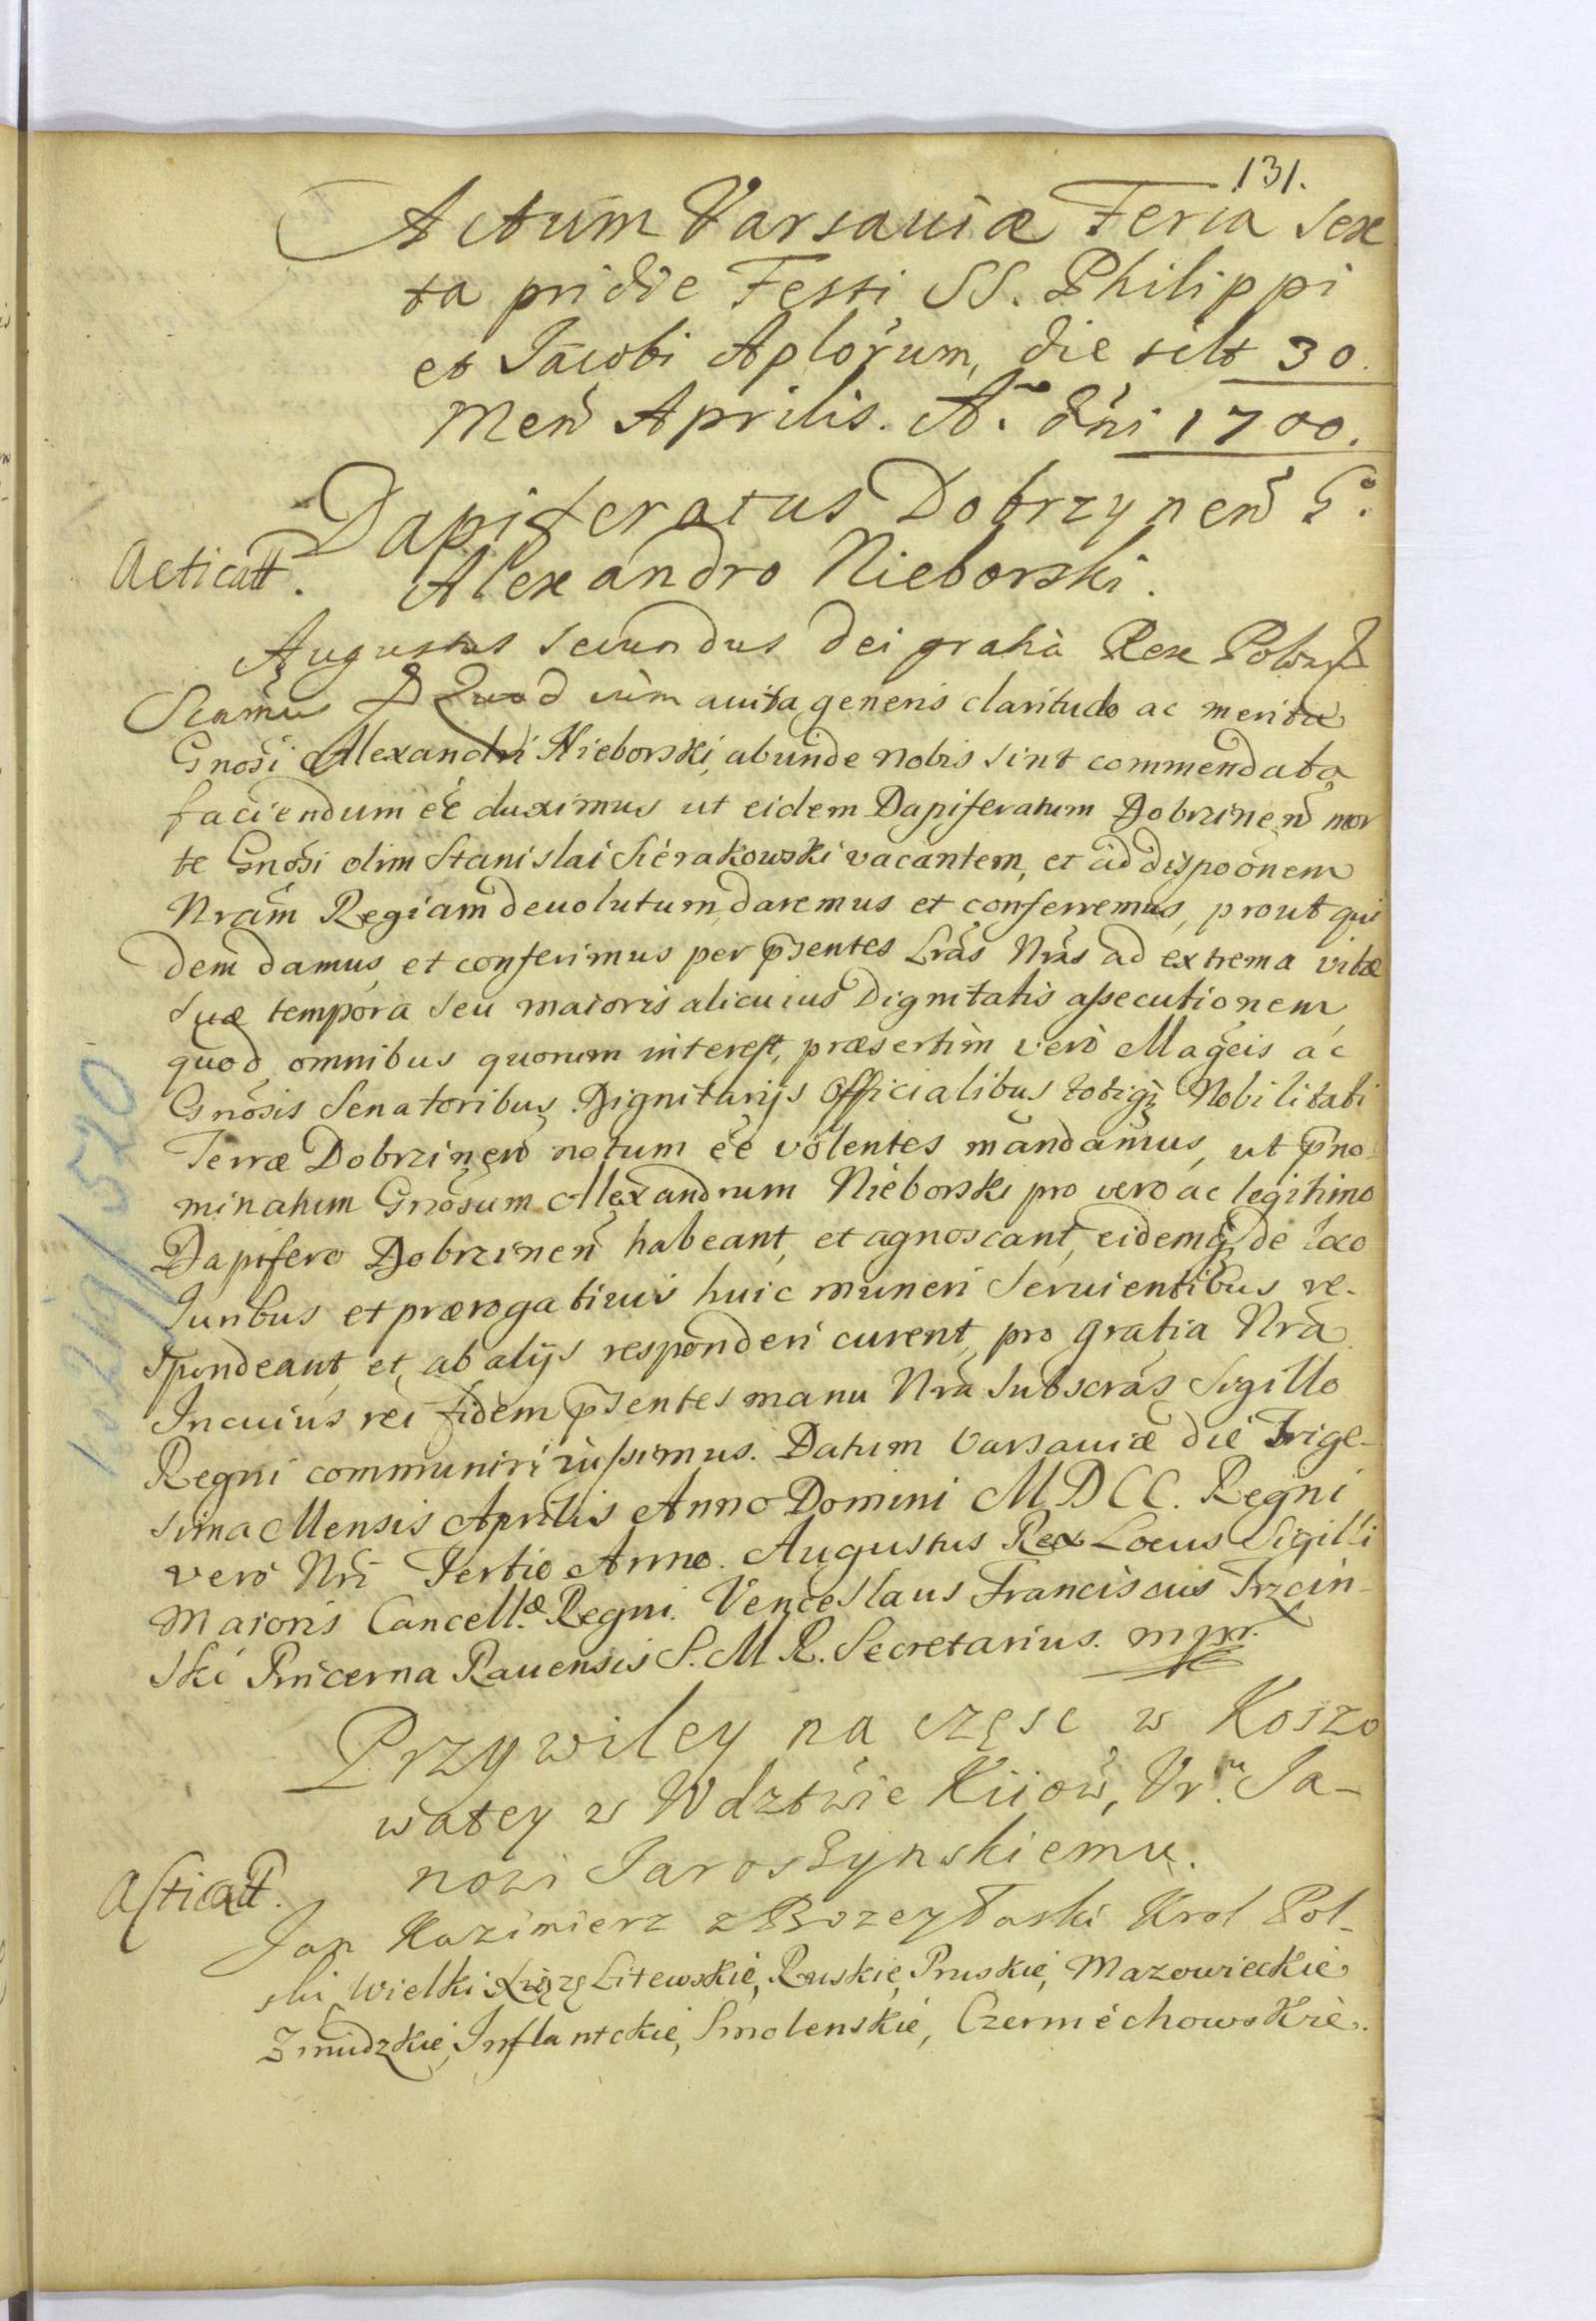 131.
Actum Varsaviæ Feria Sex
ta pridie Festi SS. Philippi
et Jacobi Aplorum, die scilt 30.
Men̄ Aprilis. Aº. dn̄i 1700.
Dapiferatus Dobrzynen̄ Gº.
Acticatt. Alexandro Nieborski.
Augustus Secundus Dei gratia Rex Pol
Quod cum auita generis claritudo ac merita
Gnosi Alexandri Nieborski, abunde nobis sint commendata
faciendum eē duximus ut eidem Dapiferatum Dobrzinen̄ mor
te Gnosi olim Stanislai Sierakowski vacantem, et ad dispoōnem
Nrām Regiam deuolutum, daremus et conferremus, prout qui
dem damus, et conferimus per p̄sentes Lrās Nrās ad extrema vitæ
suæ tempora seu maioris alicuius Dignitatis assecutionem,
quod omnibus quorum interest, præsertim verò Magcis ac
Gnosis Senatoribus Dignitarijs Officialibus totiq; Nobilitati
Terræ Dobrzinen̄ notum eē volentes mandamus, ut p̄no
minatum Gnosum Alexandrum Nieborski pro vero ac legitimo
Dapifero Dobrzinen̄ habeant, et agnoscant, eidemq; de loco
Juribus et prærogatiuis huic muneri seruientibus re-
spondeant, et ab alijs responderi curent, pro gratia Nrā
In cuius rei fidem p̄sentes manu Nrā subscrās Sigillo
Regni communiri iussimus. Datum Varsauiæ die Trige-
sima Mensis Aprilis Anno Domini MDCC. Regni
verò Nrī Tertio Anno. Augustus Rex Locus Sigilli
Maioris Cancellæ Regni. Venceslaus Franciscus Trzcin-
ski Pincerna Rauensis S. M. R. Secretarius. mpr.
Przywiley na częsc w Koszo
watey w Wdztwie Kiiow, Vr. Ja-
nowi Jaroszynskiemu.
Acticatt.
Jan Kazimierz z Bozey Łaski Krol Pol-
ski Wielki Xiązę Litewskie, Ruskie, Pruskie, Mazowieckie
Zmudzkie, Inflantckie, Smolenskie, Czerniechowskie.